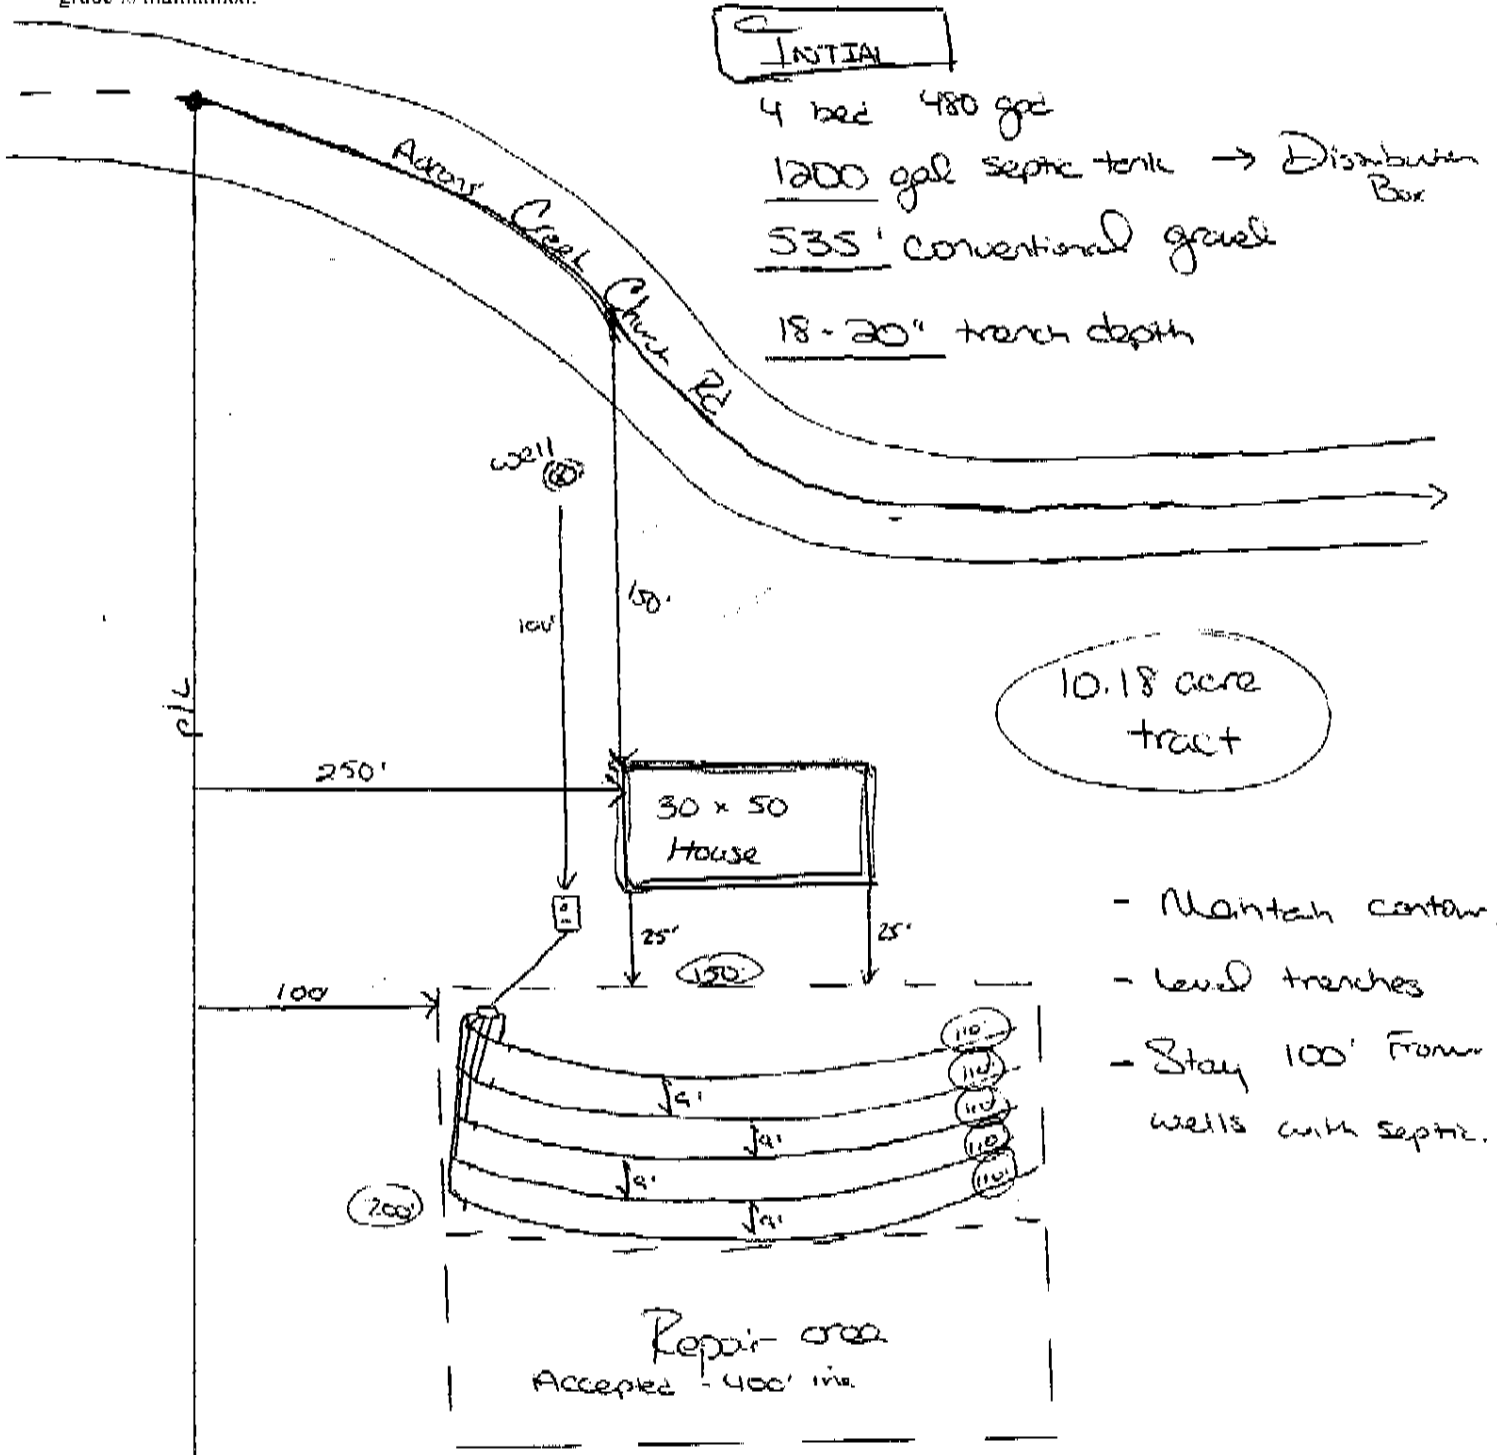 INITIAL
4 bed 480 gpd
1200 gal septic tank → Distribution
Box
535' conventional gravel
18-20" trench depth
Creek Church Rd
well
150'
100'
10.18 acre
tract
p/L
250'
30 x 50
House
25'
25'
- Maintain contour
150'
100'
- Level trenches
110'
- Stay 100' From
110'
9'
110'
wells with septic.
9'
110'
9'
110'
200'
9'
Repair area
Accepted - 400' line